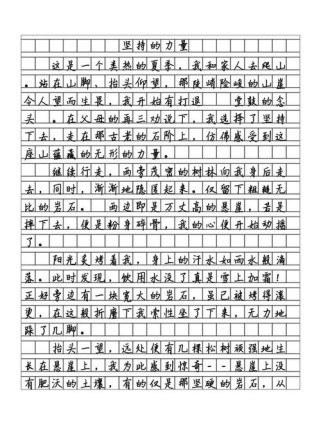 坚持的力量
这是一个炎热的夏季，我和家人去爬山
。站在山脚，抬头仰望，那陡峭险峻的山崖
令人望而生畏，我开始有打退 堂鼓的念
头。在父母的再三劝说下，我选择了坚持
下去，走在那古老的石阶上，仿佛感受到这
座山蕴藏的无形的力量。
继续行走，两旁茂密的树林向我身后走
去，同时，渐渐地隐匿起来。仅留下粗糙无
比的岩石。 两边即是万丈高的悬崖，若是
摔下去，便是粉身碎骨，我的心便开始动摇
了。
阳光炙烤着我，身上的汗水如雨水般涌
落。此时发现，饮用水没了真是雪上加霜！
正好旁边有一块宽大的岩石，虽已被烤得滚
烫，在这般折磨下我索性坐了下来，无力地
跺了几脚。
抬头一望，远处便有几棵松树顽强地生
长在悬崖上，我为此感到惊奇--悬崖上没
有肥沃的土壤，有的仅是那坚硬的岩石，从